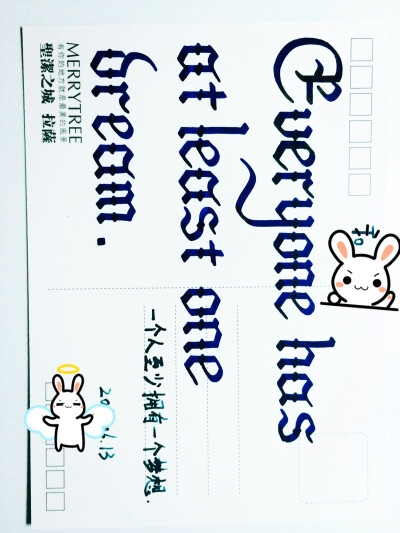 Everyone has
at least one
dream.
一个人至少拥有一个梦想.
MERRYTREE
有你的地方就是最美的風景
聖潔之城 拉薩